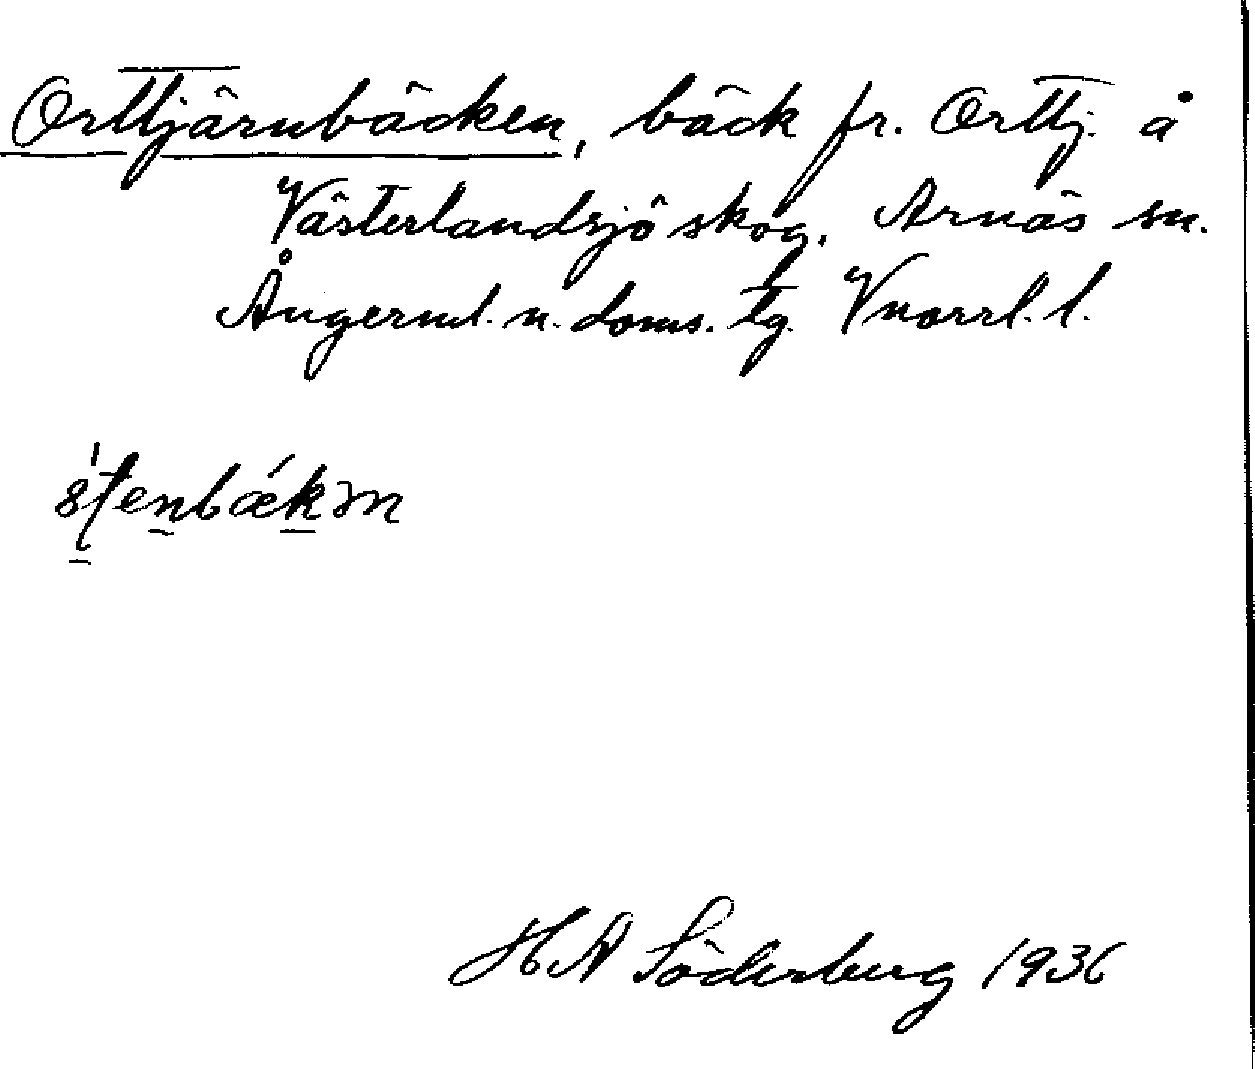 Orttjärnbäcken, bäck fr. Orttj. å
Västerlandsjö skog, Arnäs sn.
Ångerml. n. doms. tg. Vnorrl. l.
H A Söderberg 1936